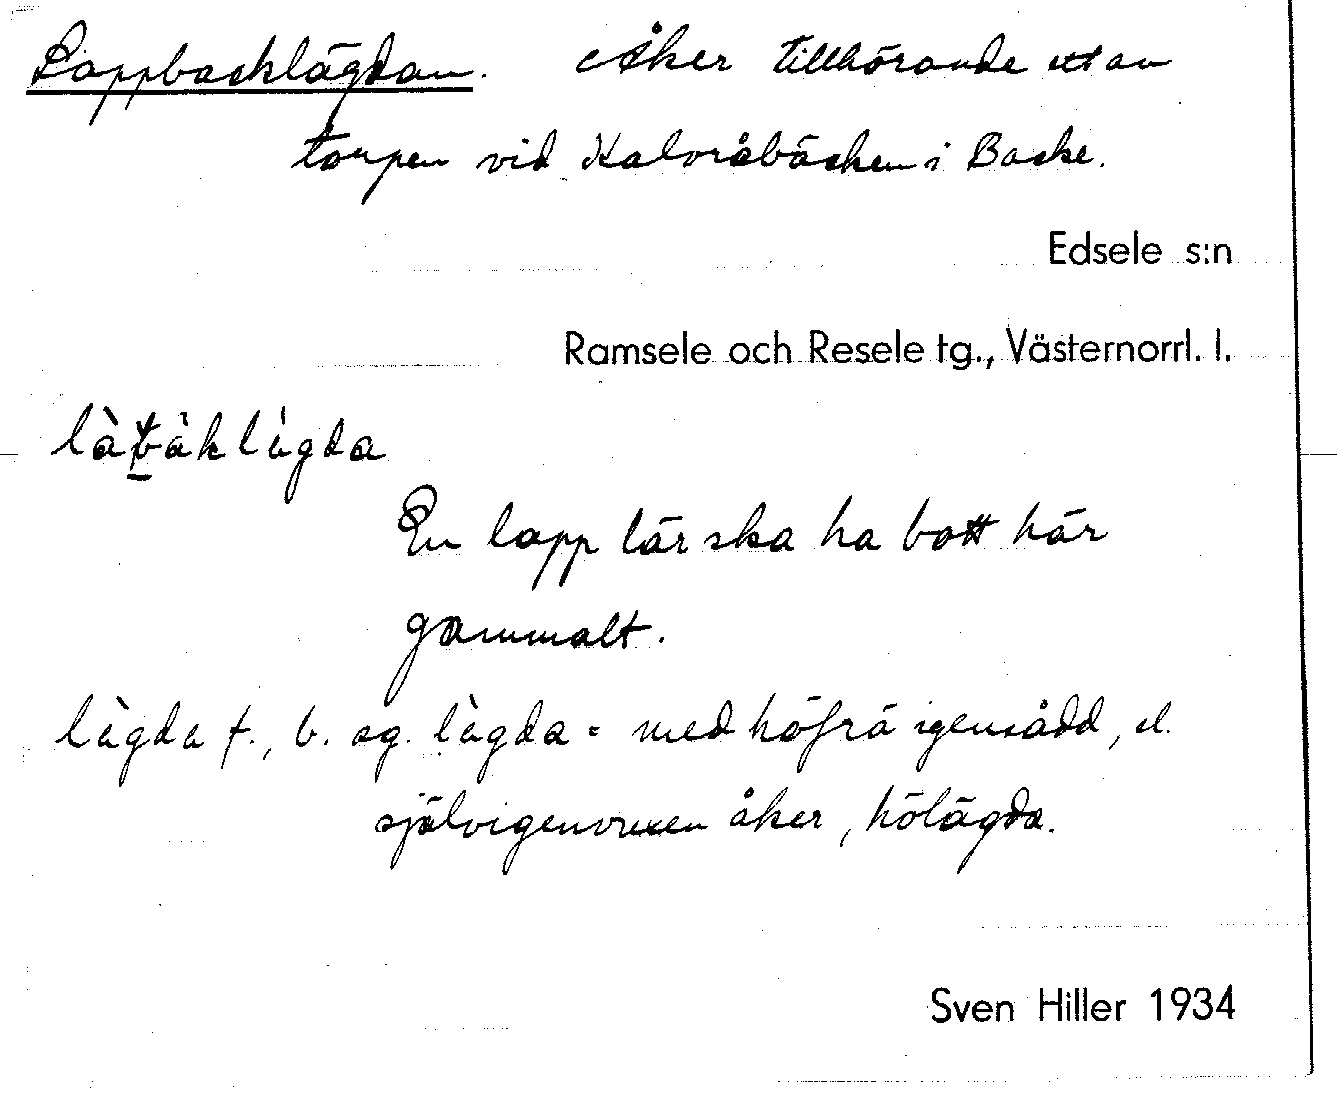 Lappbacklägdan. Åker tillhörande ett av
torpen vid Kalvråbäcken i Backe.
Edsele s:n
Ramsele och Resele tg., Västernorrl. l.
làbàklàgda
En lapp lär ska ha bott här
gammalt.
làgda f., b. sg. làgda = med höfrö igensådd, el.
självigenvuxen åker, hölägda.
Sven Hiller 1934